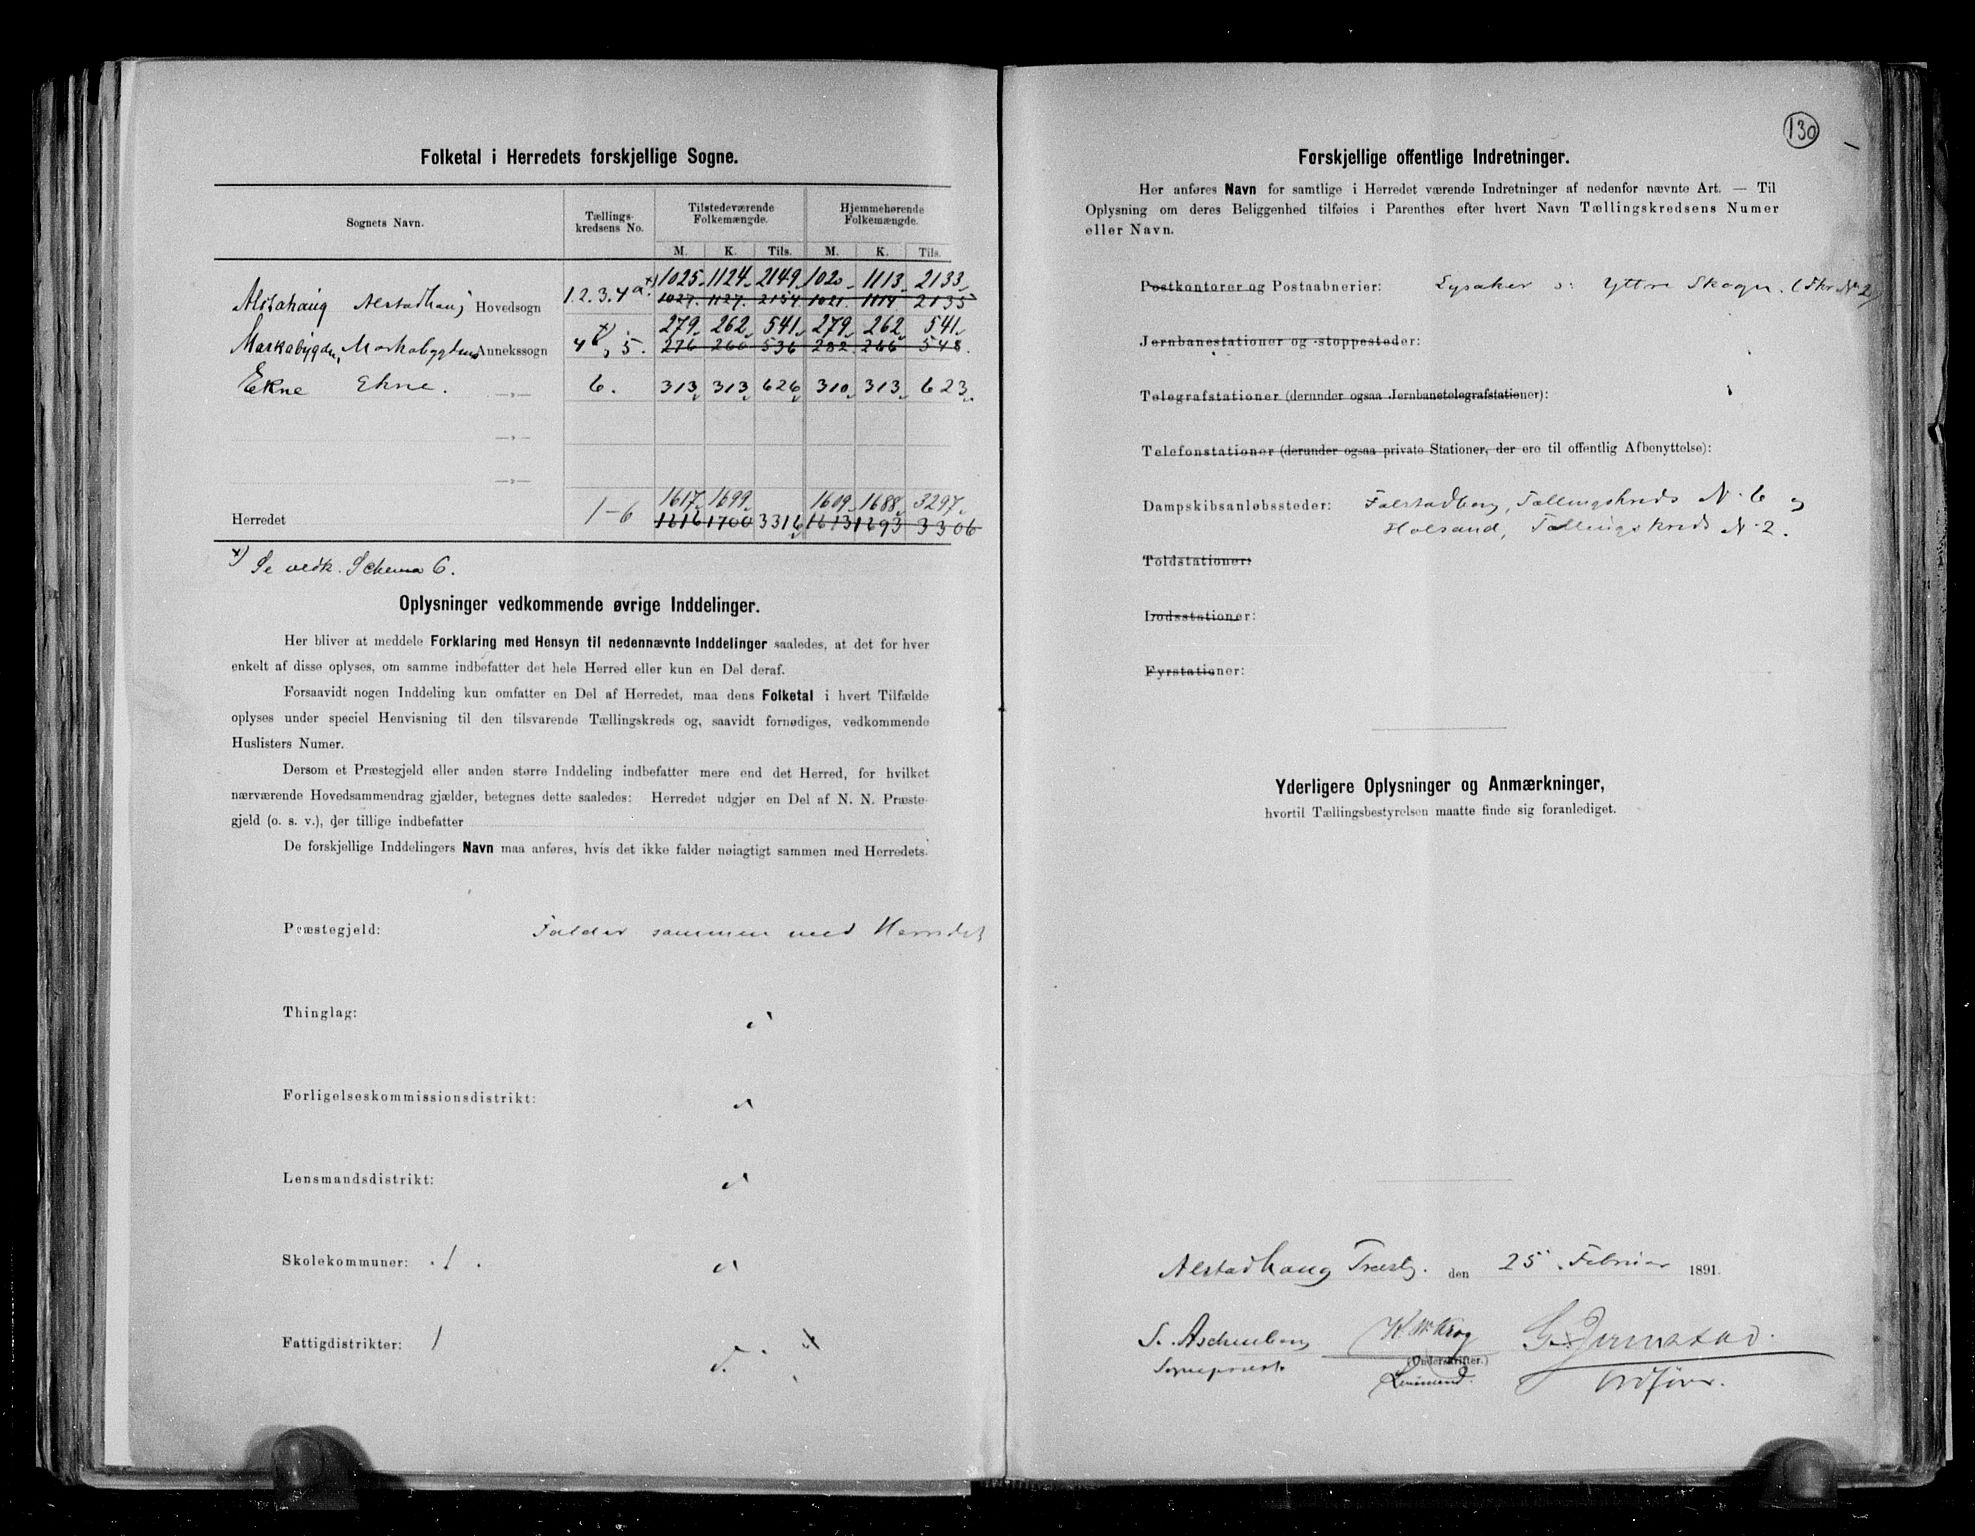 Folketal i Herredets forskjellige Sogne.
Sognets Navn. Tællings-kredsens No. Tilstedeværende Folkemængde. Hjemmehørende Folkemængde.
M. K. Tils. M. K. Tils.
1025 1124 2149 1020 1113 2133
Alstahaug Alstadhaug Hovedsogn 1. 2. 3. 4 a x) 1027 1127 2154 1021 1114 2135
279 262 541 279 262 541
Markabygden Markabygdens Annekssogn 4 b x), 5. 276 260 536 282 266 548
Ekne Ekne. —„— 6. 313 313 626 310 313 623
—„—
—„—
1617 1699 1609 1688 3297
Herredet 1-6 1616 1700 3316 1613 1693 3306
x) Se vedk. Schema 6.
Oplysninger vedkommende øvrige Inddelinger.
Her bliver at meddele Forklaring med Hensyn til nedennævnte Inddelinger saaledes, at det for hver
enkelt af disse oplyses, om samme indbefatter det hele Herred eller kun en Del deraf.
Forsaavidt nogen Inddeling kun omfatter en Del af Herredet, maa dens Folketal i hvert Tilfælde
oplyses under speciel Henvisning til den tilsvarende Tællingskreds og, saavidt fornødiges, vedkommende
Huslisters Numer.
Dersom et Præstegjeld eller anden større Inddeling indbefatter mere end det Herred, for hvilket
nærværende Hovedsammendrag gjælder, betegnes dette saaledes: Herredet udgjør en Del af N. N. Præste-
gjeld (o. s. v.), der tillige indbefatter
De forskjellige Inddelingers Navn maa anføres, hvis det ikke falder nøiagtigt sammen med Herredets.
Præstegjeld: Falder sammen med Herredet
Thinglag:
Forligelseskommissionsdistrikt:
Lensmandsdistrikt:
Skolekommuner: 1.
Fattigdistrikter: 1
130
Forskjellige offentlige Indretninger.
Her anføres Navn for samtlige i Herredet værende Indretninger af nedenfor nævnte Art. — Til
Oplysning om deres Beliggenhed tilføies i Parenthes efter hvert Navn Tællingskredsens Numer
eller Navn.
Postkontorer og Postaabnerier: Lysaker o: Yttre Skogn. (Tkr. No 2)
Jernbanestationer og -stoppesteder:
Telegrafstationer (derunder ogsaa Jernbanetelegrafstationer):
Telefonstationer (derunder ogsaa private Stationer, der ere til offentlig Afbenyttelse):
Dampskibsanløbssteder: Falstadberg, Tællingskreds N. 6 og
Holsand, Tællingskreds N. 2.
Toldstationer:
Lodsstationer:
Fyrstationer:
Yderligere Oplysninger og Anmærkninger,
hvortil Tællingsbestyrelsen maatte finde sig foranlediget.
Alstadhaug Præstg. den 25 Februar 1891.
S. Aschenberg K. W. Krog
Sogneprest (Underskrifter.) Lensmand. Ordfører.